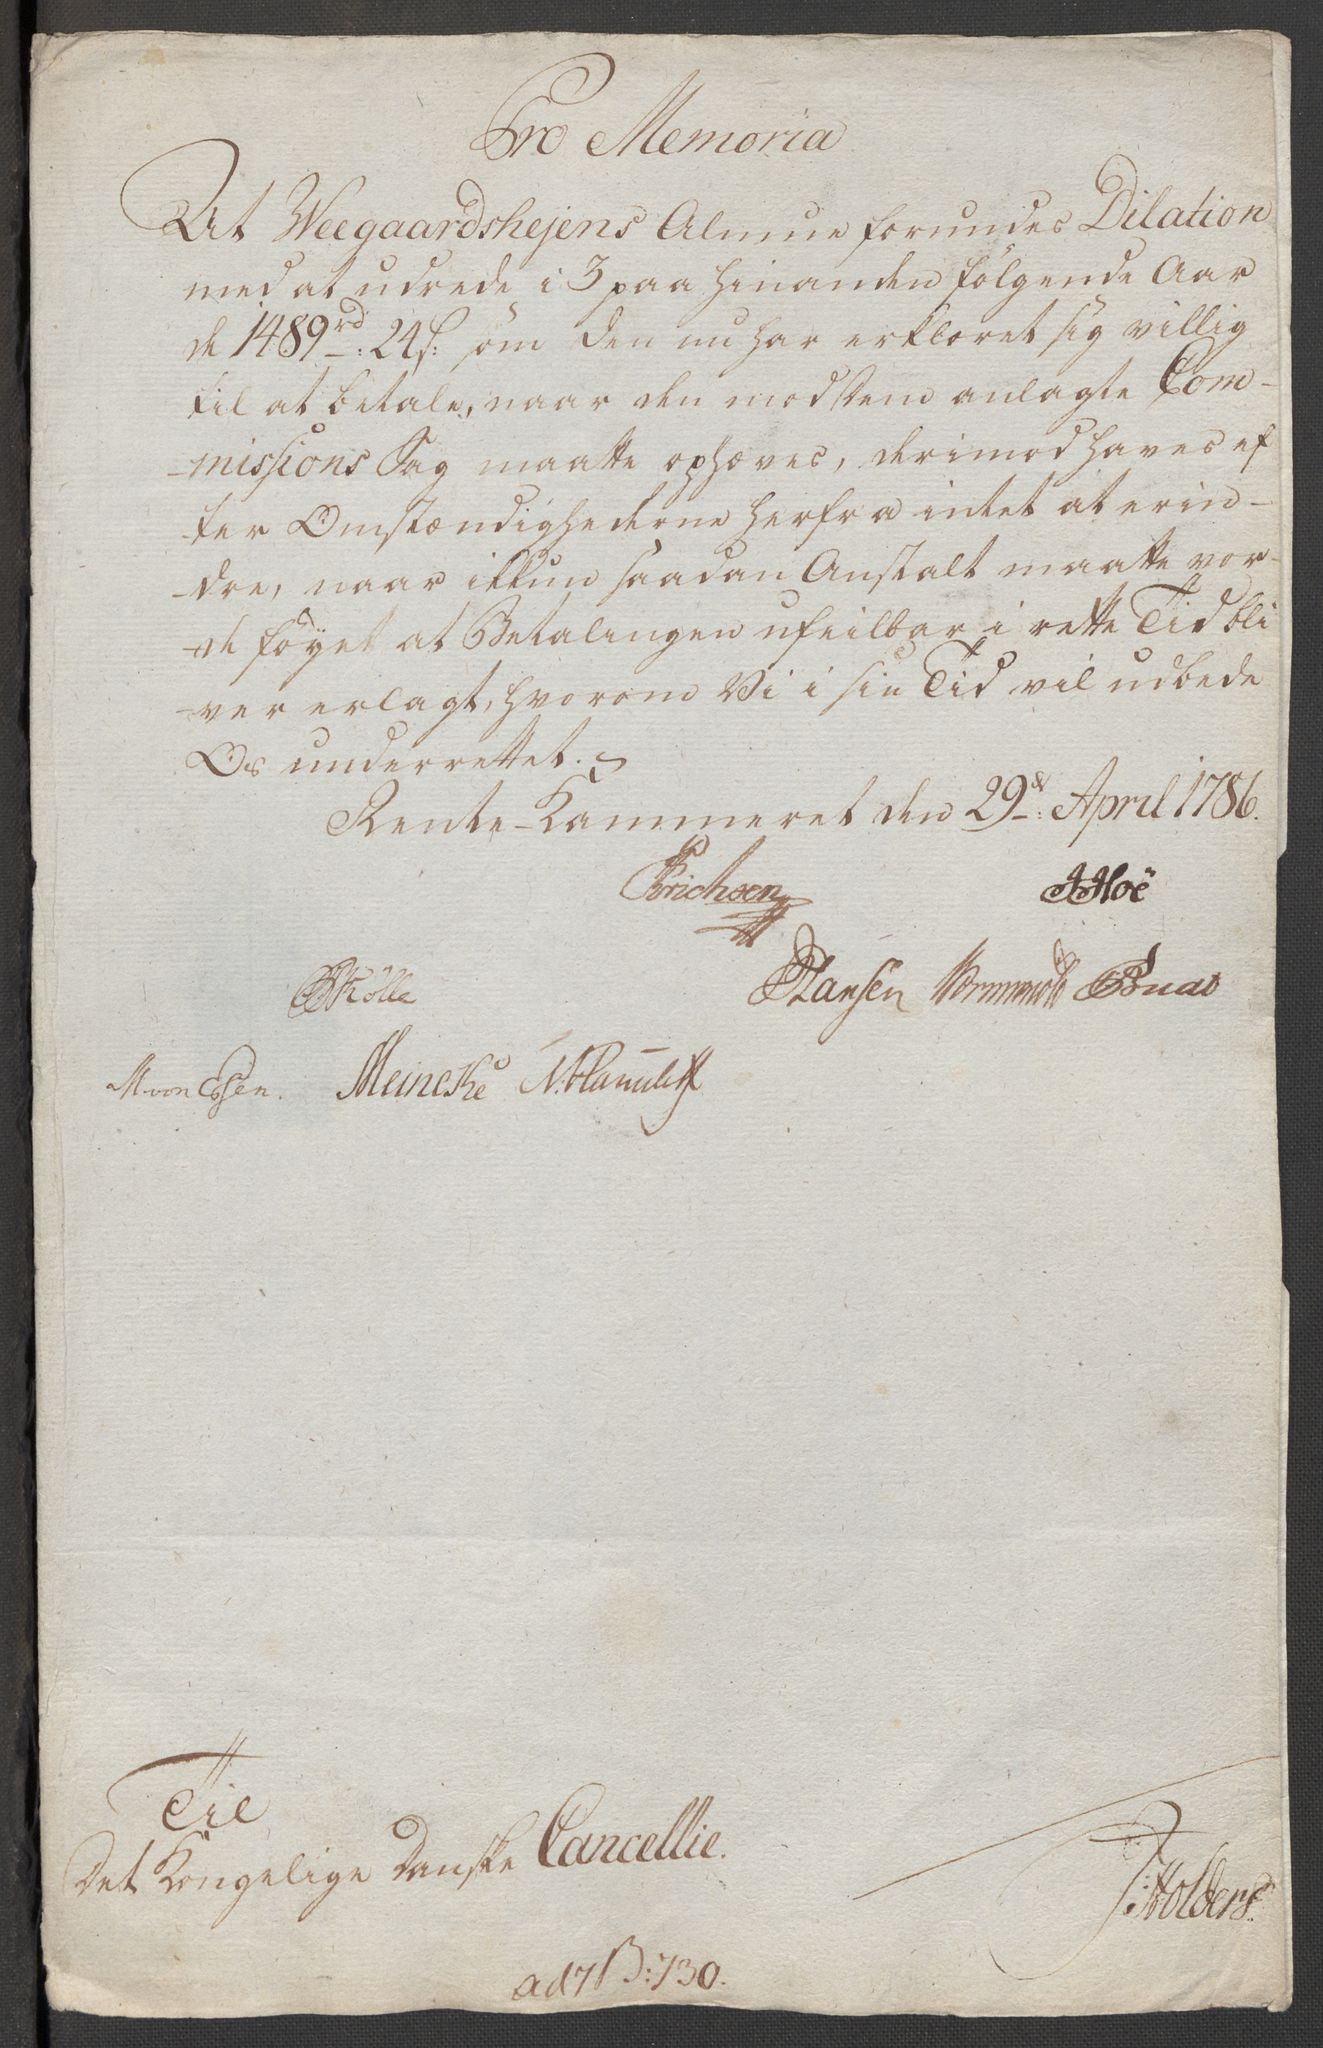 Pro Memoria
At Weegaardshejens Almue forundes Dilation
med at udrede i 3 paa hinanden følgende Aar
de 1489rd: 24s: som den nu har erklæret sig villig
til at betale, naar den mod dem anlagte Com-
missions Sag maatte ophæves, derimod haves ef
ter Omstændighederne herfra intet at erin-
dre, naar ikkun saadan Anstalt maatte vor-
de føyet at Betalingen ufeilbar i rette Tid bli
ver erlagt, hvorom Vi i sin Tid vil udbede
Os underrettet.
Rente-Kammeret den 29de: April 1786.
Erichsen AHoë
Kölle PHansen Wormwold
M von Essen. Meincke
Til
Det Kongelige Danske Cancellie.
Holders
ad 7 B: 730.